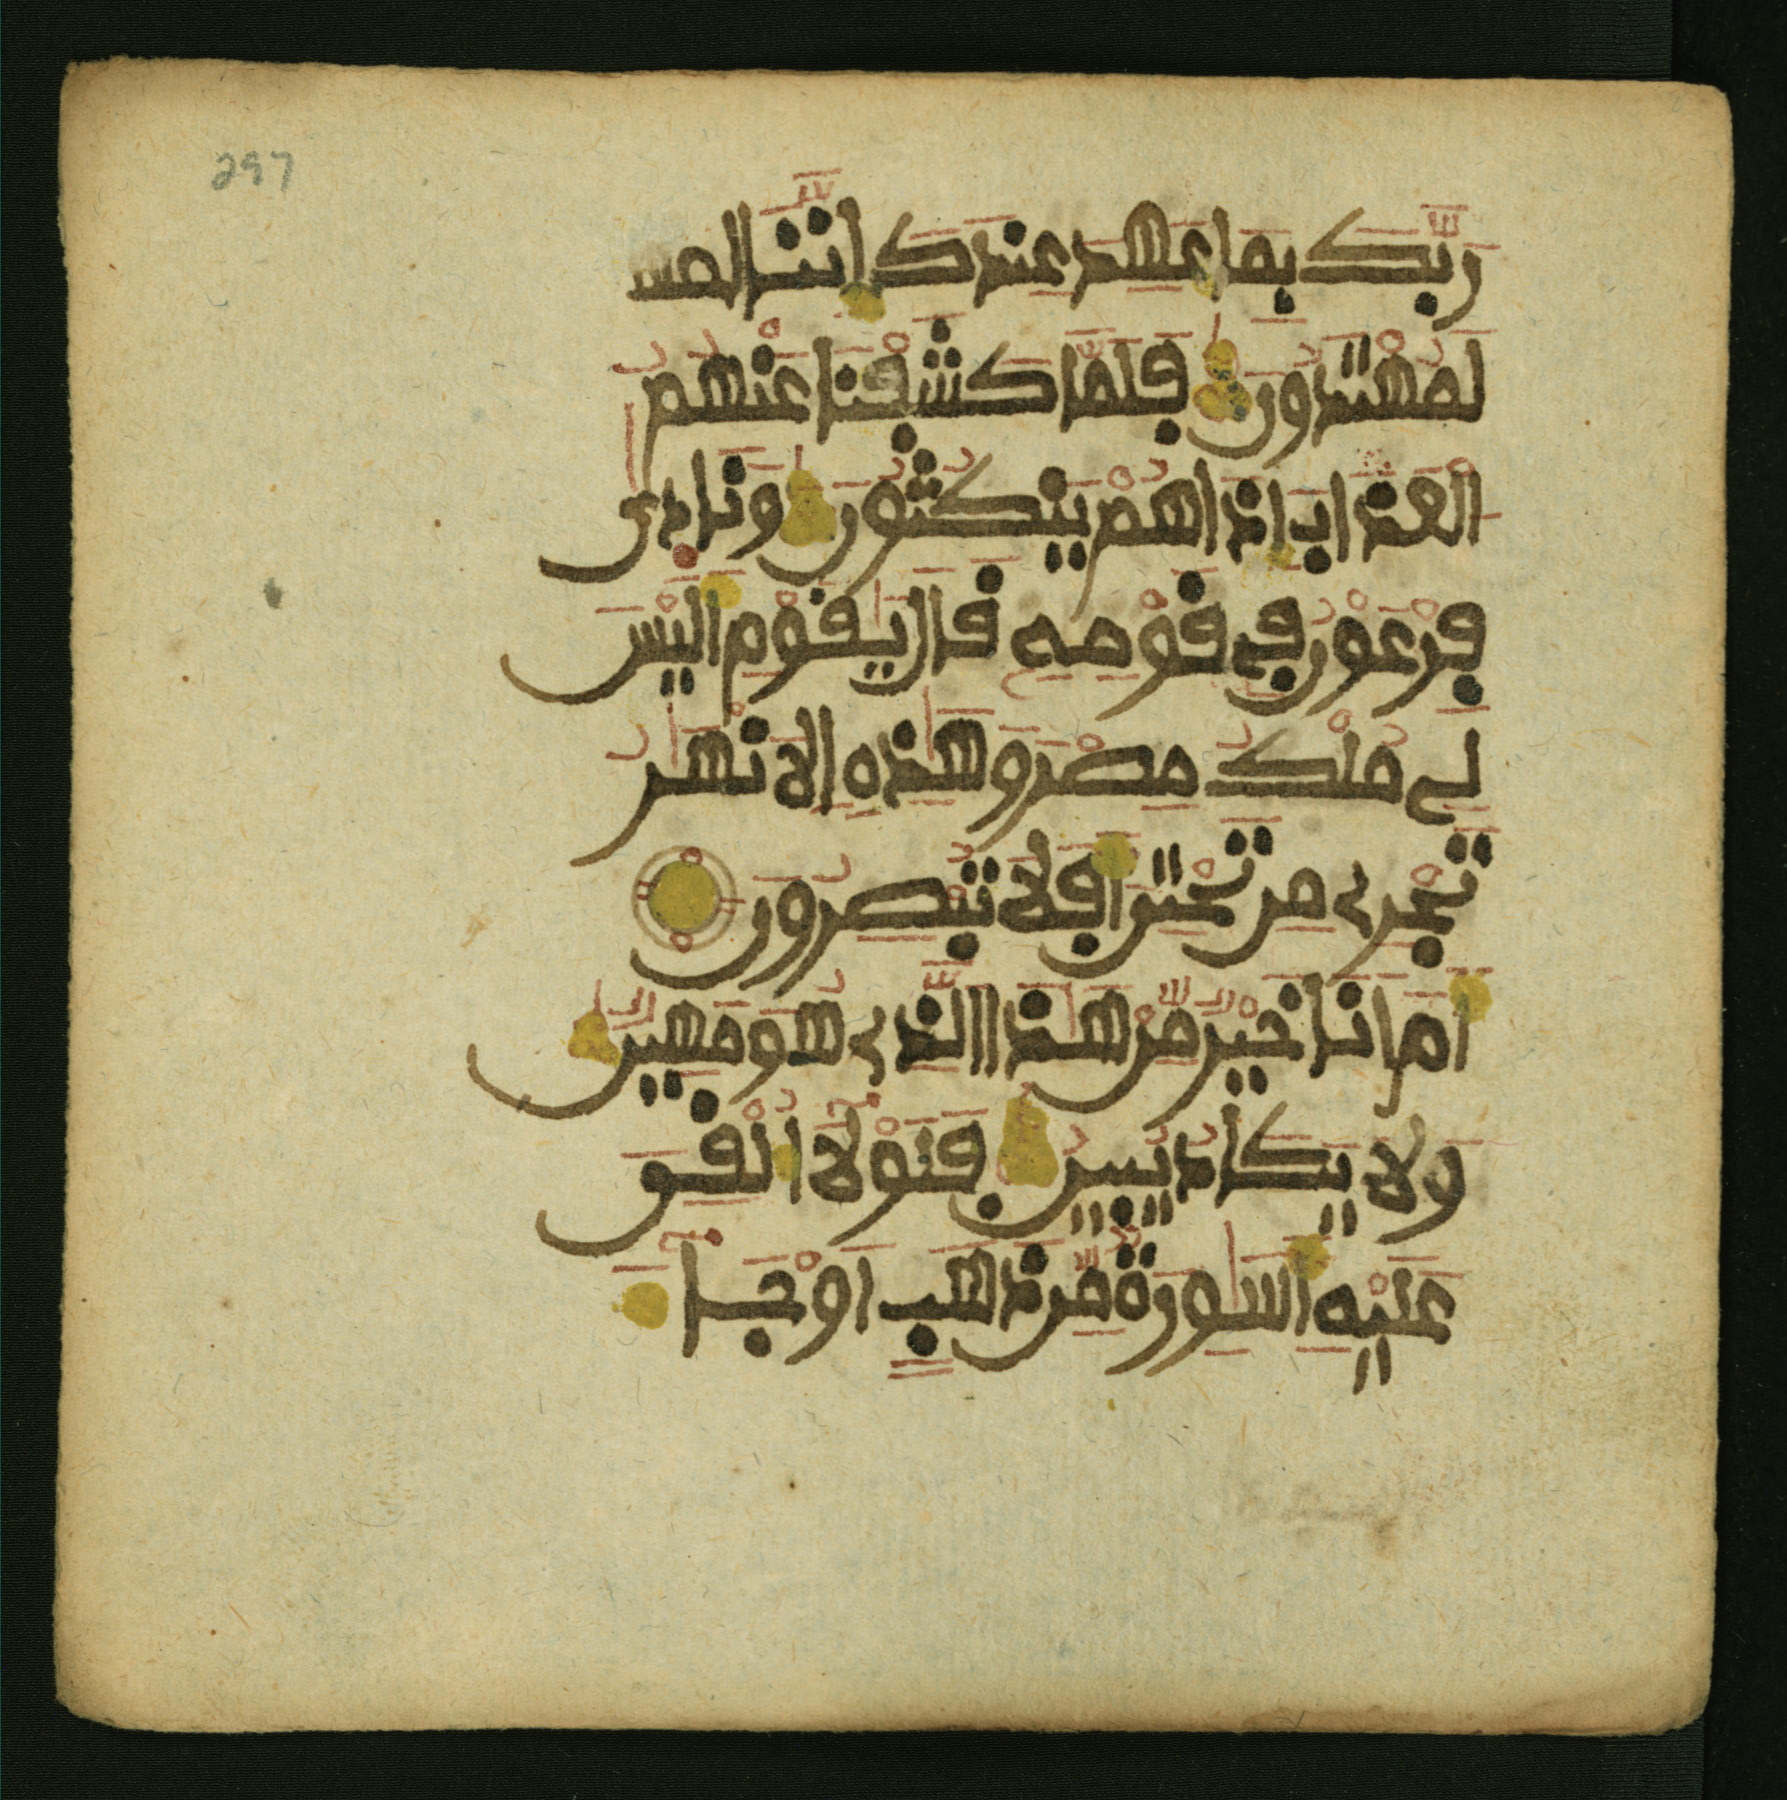 297
ربك بما عهد عندك اننا
لمهتدون فلما كشفنا عنهم
العذاب اذا هم ينكثون ونادى
فرعون في قومه قال يقوم اليس
لي ملك مصر وهذه الانهر
تجري من تحتي افلا تبصرون
ام انا خير من هذا الذي هو مهين
ولا يكاد يبين فلولا القي
عليه اسورة من ذهب او جا